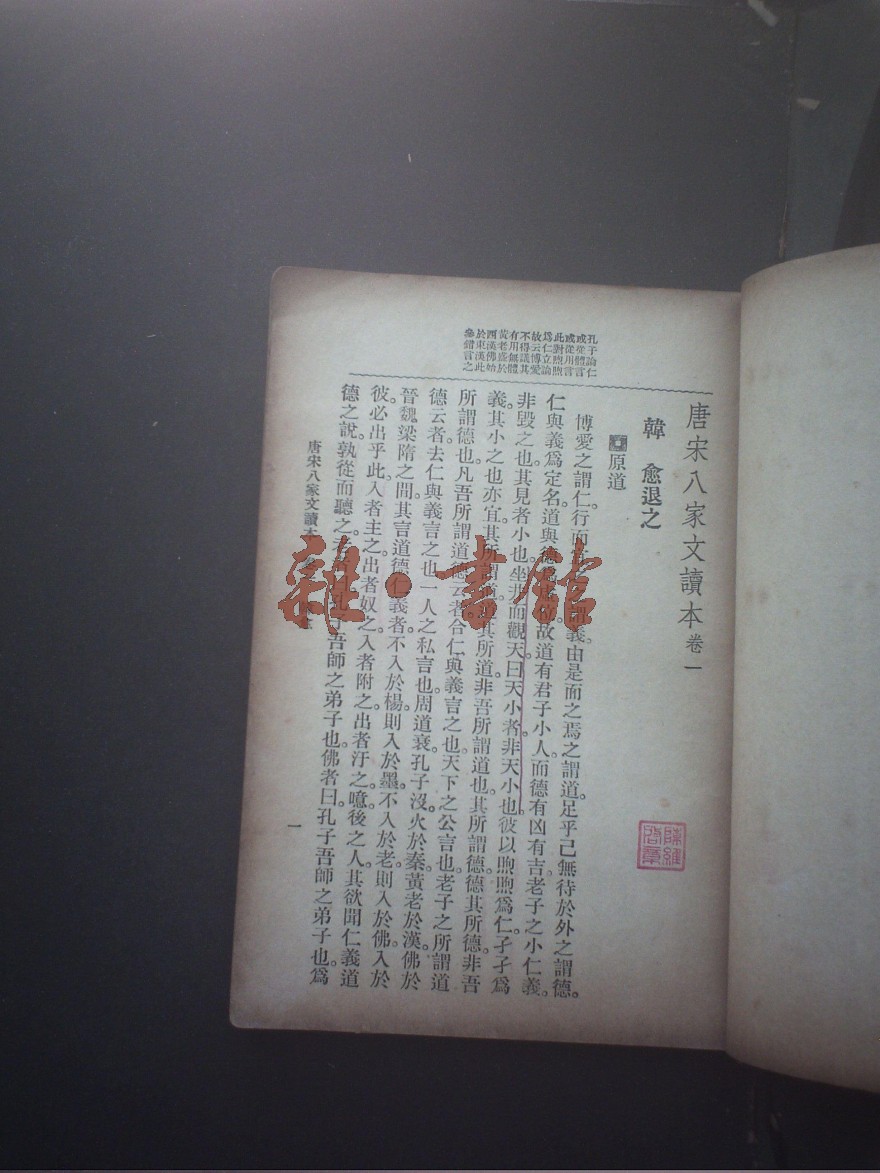 唐宋八家文讀本 卷一
韓 愈退之
原道
孔子論仁
或從體言
或從用言
此對煦煦
爲仁立論
故云博愛
不得議其
有用無體
黃老盛於
西漢佛始
於東漢此
參錯言之
博愛之謂仁。行而謂義。由是而之焉之謂道。足乎己無待於外之謂德。
仁與義爲定名。道與德位。故道有君子小人。而德有凶有吉。老子之小仁義。
非毀之也。其見者小也。坐井而觀天曰天小者。非天小也。彼以煦煦爲仁。孑孑爲
義。其小之也亦宜。其所謂道其所道。非吾所謂道也。其所謂德。德其所德。非吾
所謂德也。凡吾所謂道德云者。合仁與義言之也。天下之公言也。老子之所謂道
德云者。去仁與義言之也。一人之私言也。周道衰。孔子沒。火於秦。黃老於漢。佛於
晉魏梁隋之間。其言道德仁義者。不入於楊。則入於墨。不入於老。則入於佛。入於
彼必出乎此。入者主之。出者奴之。入者附之。出者汙之。噫。後之人其欲聞仁義道
德之說。孰從而聽之。子吾師之弟子也。佛者曰。孔子吾師之弟子也。爲
唐宋八家文讀本
一
雜·書館